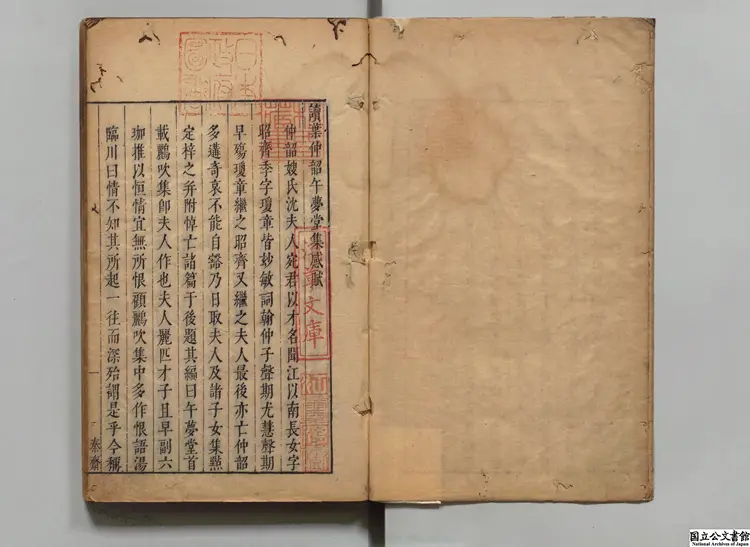 讀葉仲韶午夢堂集感賦
仲韶嫂氏沈夫人宛君以才名聞江以南長女字
昭齊季字瓊章皆妙敏詞翰仲子聲期尤慧聲期
早殤瓊章繼之昭齊又繼之夫人最後亦亡仲韶
多遘奇哀不能自豁乃日取夫人及諸子女集點
定梓之并附悼亡諸篇于後題其編曰午夢堂首
載鸝吹集卽夫人作也夫人麗匹才子且早副六
珈推以恒情宜無所恨顧鸝吹集中多作恨語湯
臨川曰情不知其所起一往而深殆謂是乎今稱
一
秦齋
日本政府圖書
淺草文庫
国立公文書館
National Archives of Japan